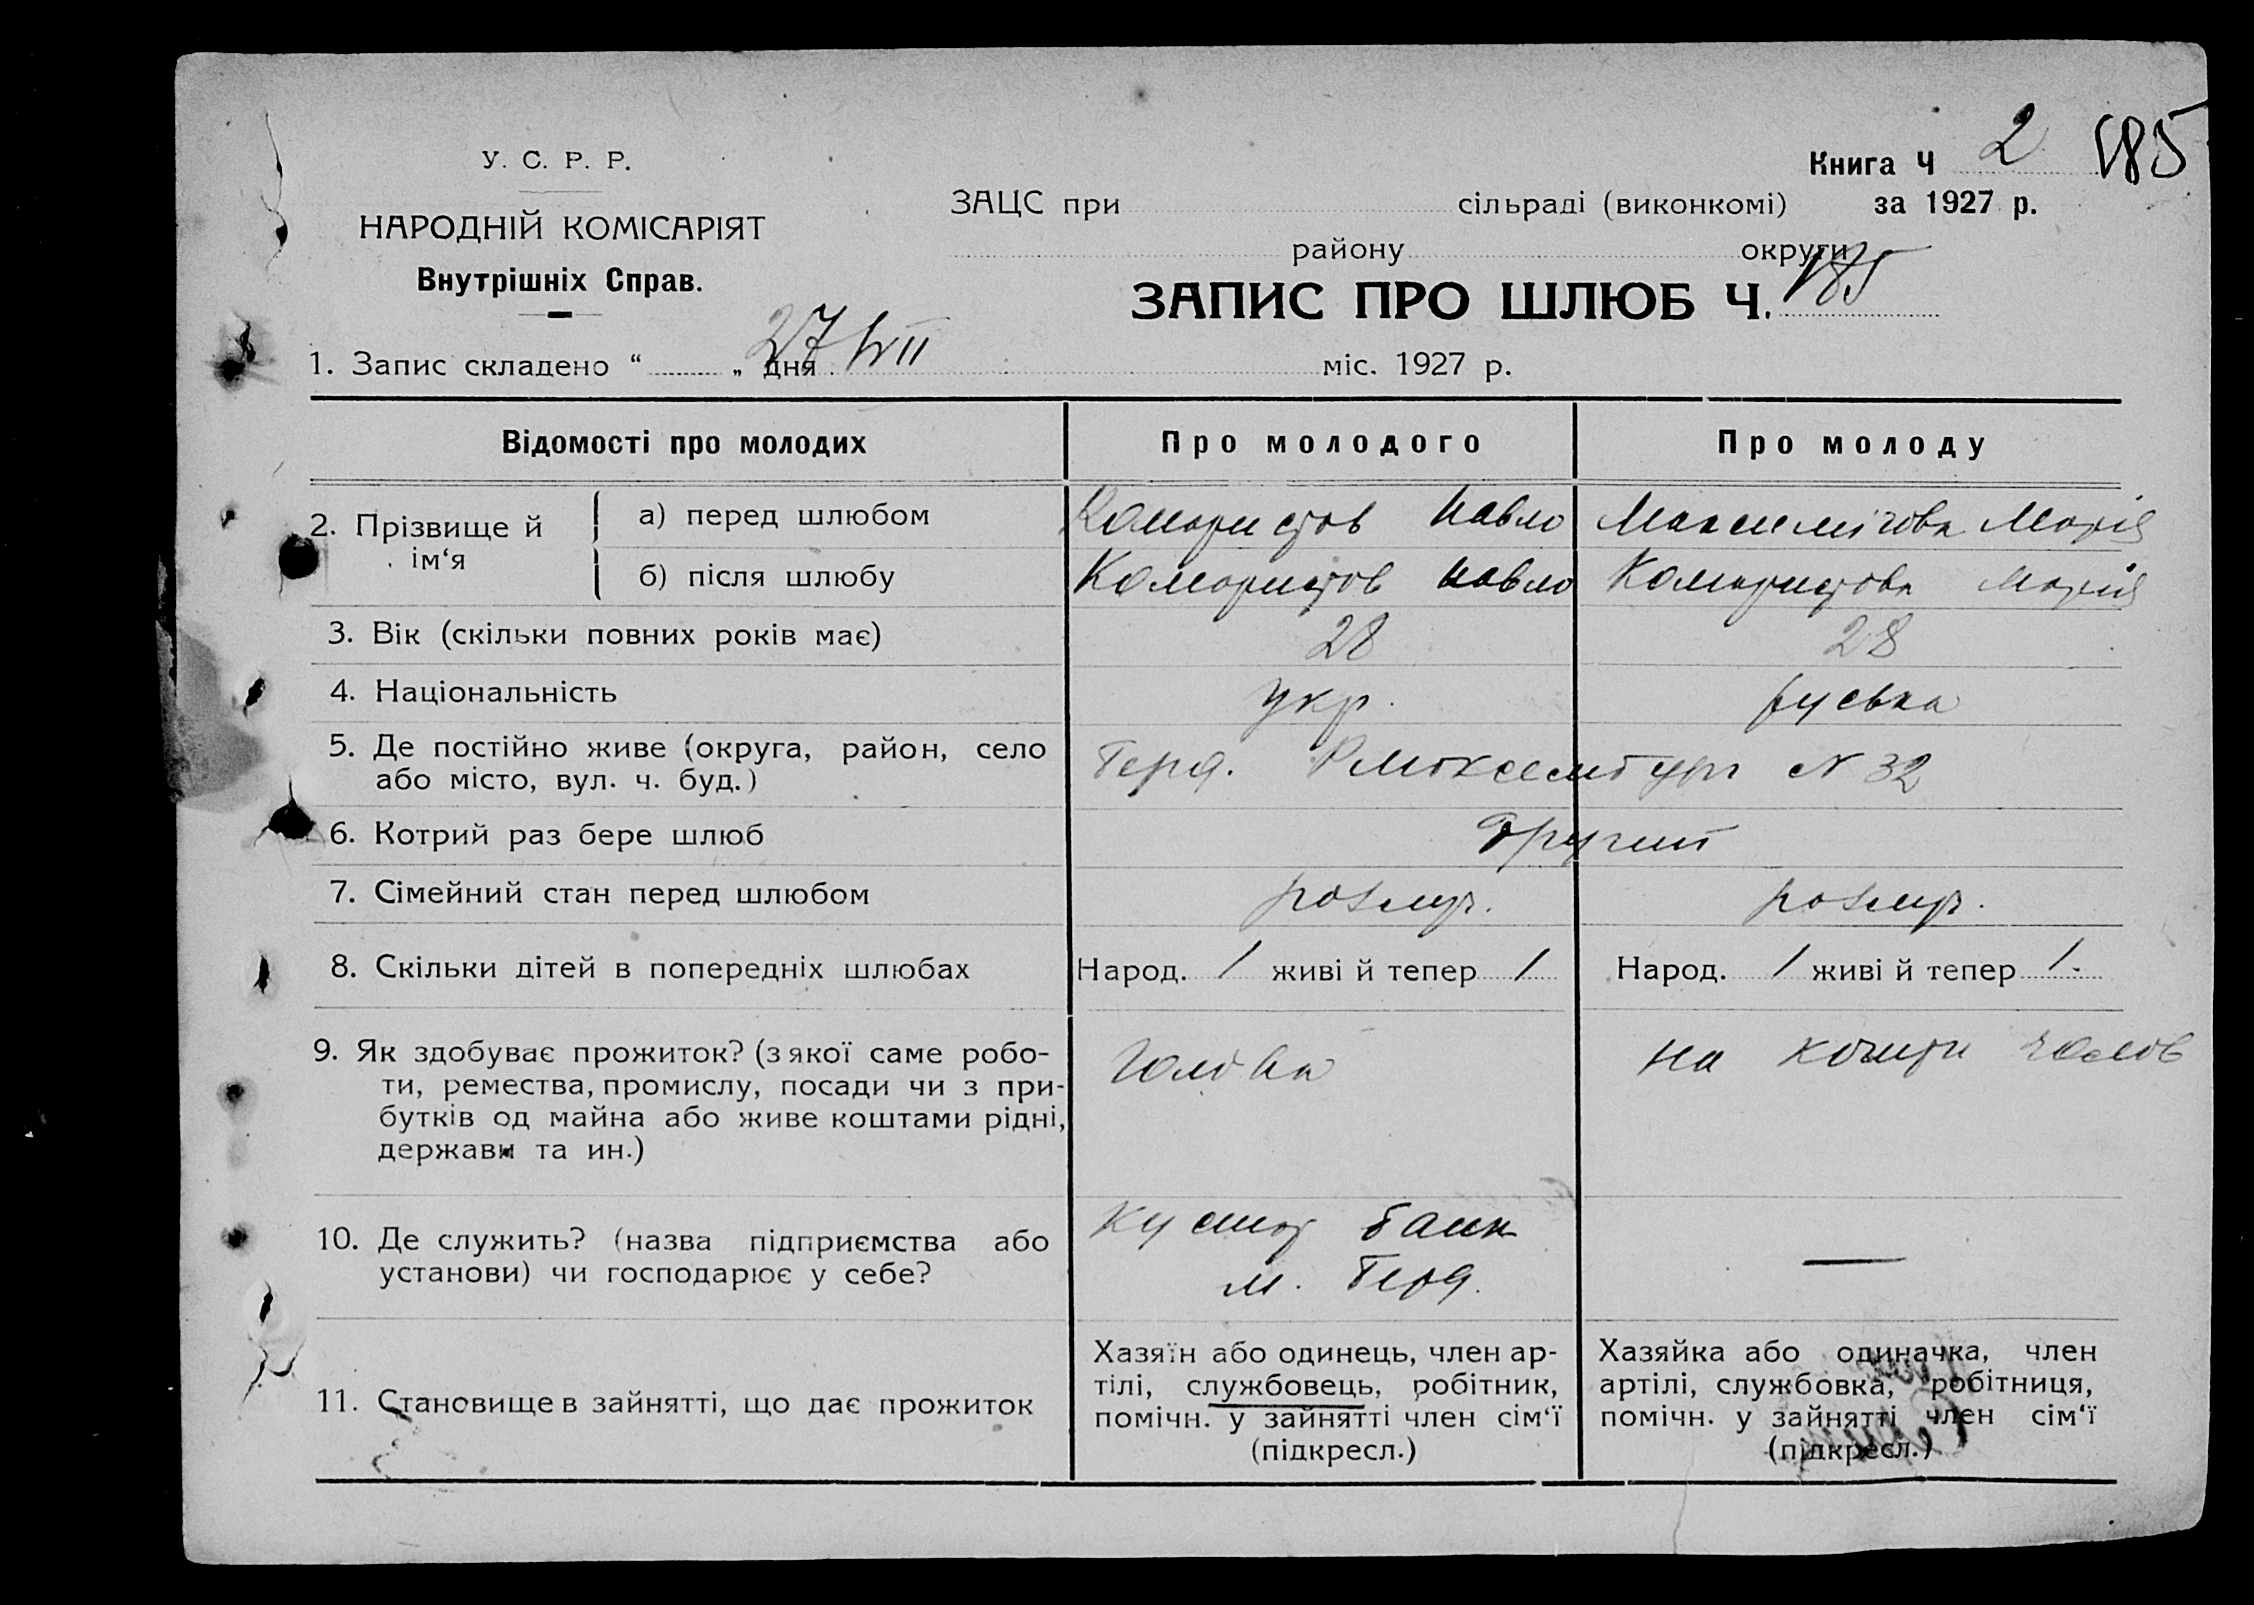 Книга Ч 2 185
У. С. Р. Р.
ЗАЦС при сільраді (виконкомі) за 1927 р.
НАРОДНІЙ КОМІСАРІЯТ
району округи
Внутрішніх Справ.
ЗАПИС ПРО ШЛЮБ Ч. 185
1. Запис складено “ „ дня 27/VII міс. 1927 р.
Відомості про молодих
Про молодого
Про молоду
2. Прізвище й ім‘я
а) перед шлюбом
Комаристов Павло
Марія
б) після шлюбу
Комаристов Павло
Комаристова Марія
3. Вік (скільки повних років має)
28
28
4. Національність
Укр.
руська
5. Де постійно живе (округа, район, село
або місто, вул. ч. буд.)
Берд. N 32
6. Котрий раз бере шлюб
Другий
7. Сімейний стан перед шлюбом
розлуч.
розлуч.
8. Скільки дітей в попередніх шлюбах
Народ. 1 живі й тепер 1
Народ. 1 живі й тепер 1.
9. Як здобуває прожиток? (з якої саме робо-
ти, ремества, промислу, посади чи з при-
бутків од майна або живе коштами рідні,
держави та ин.)
Голова
на кошти чолов
10. Де служить? (назва підприємства або
установи) чи господарює у себе?
Кустар банк
м. Берд.
—
11. Становище в зайнятті, що дає прожиток
Хазяїн або одинець, член ар-
тілі, службовець, робітник,
помічн. у зайнятті член сім‘ї
(підкресл.)
Хазяйка або одиначка, член
артілі, службовка, робітниця,
помічн. у зайнятті член сім‘ї
(підкресл.)